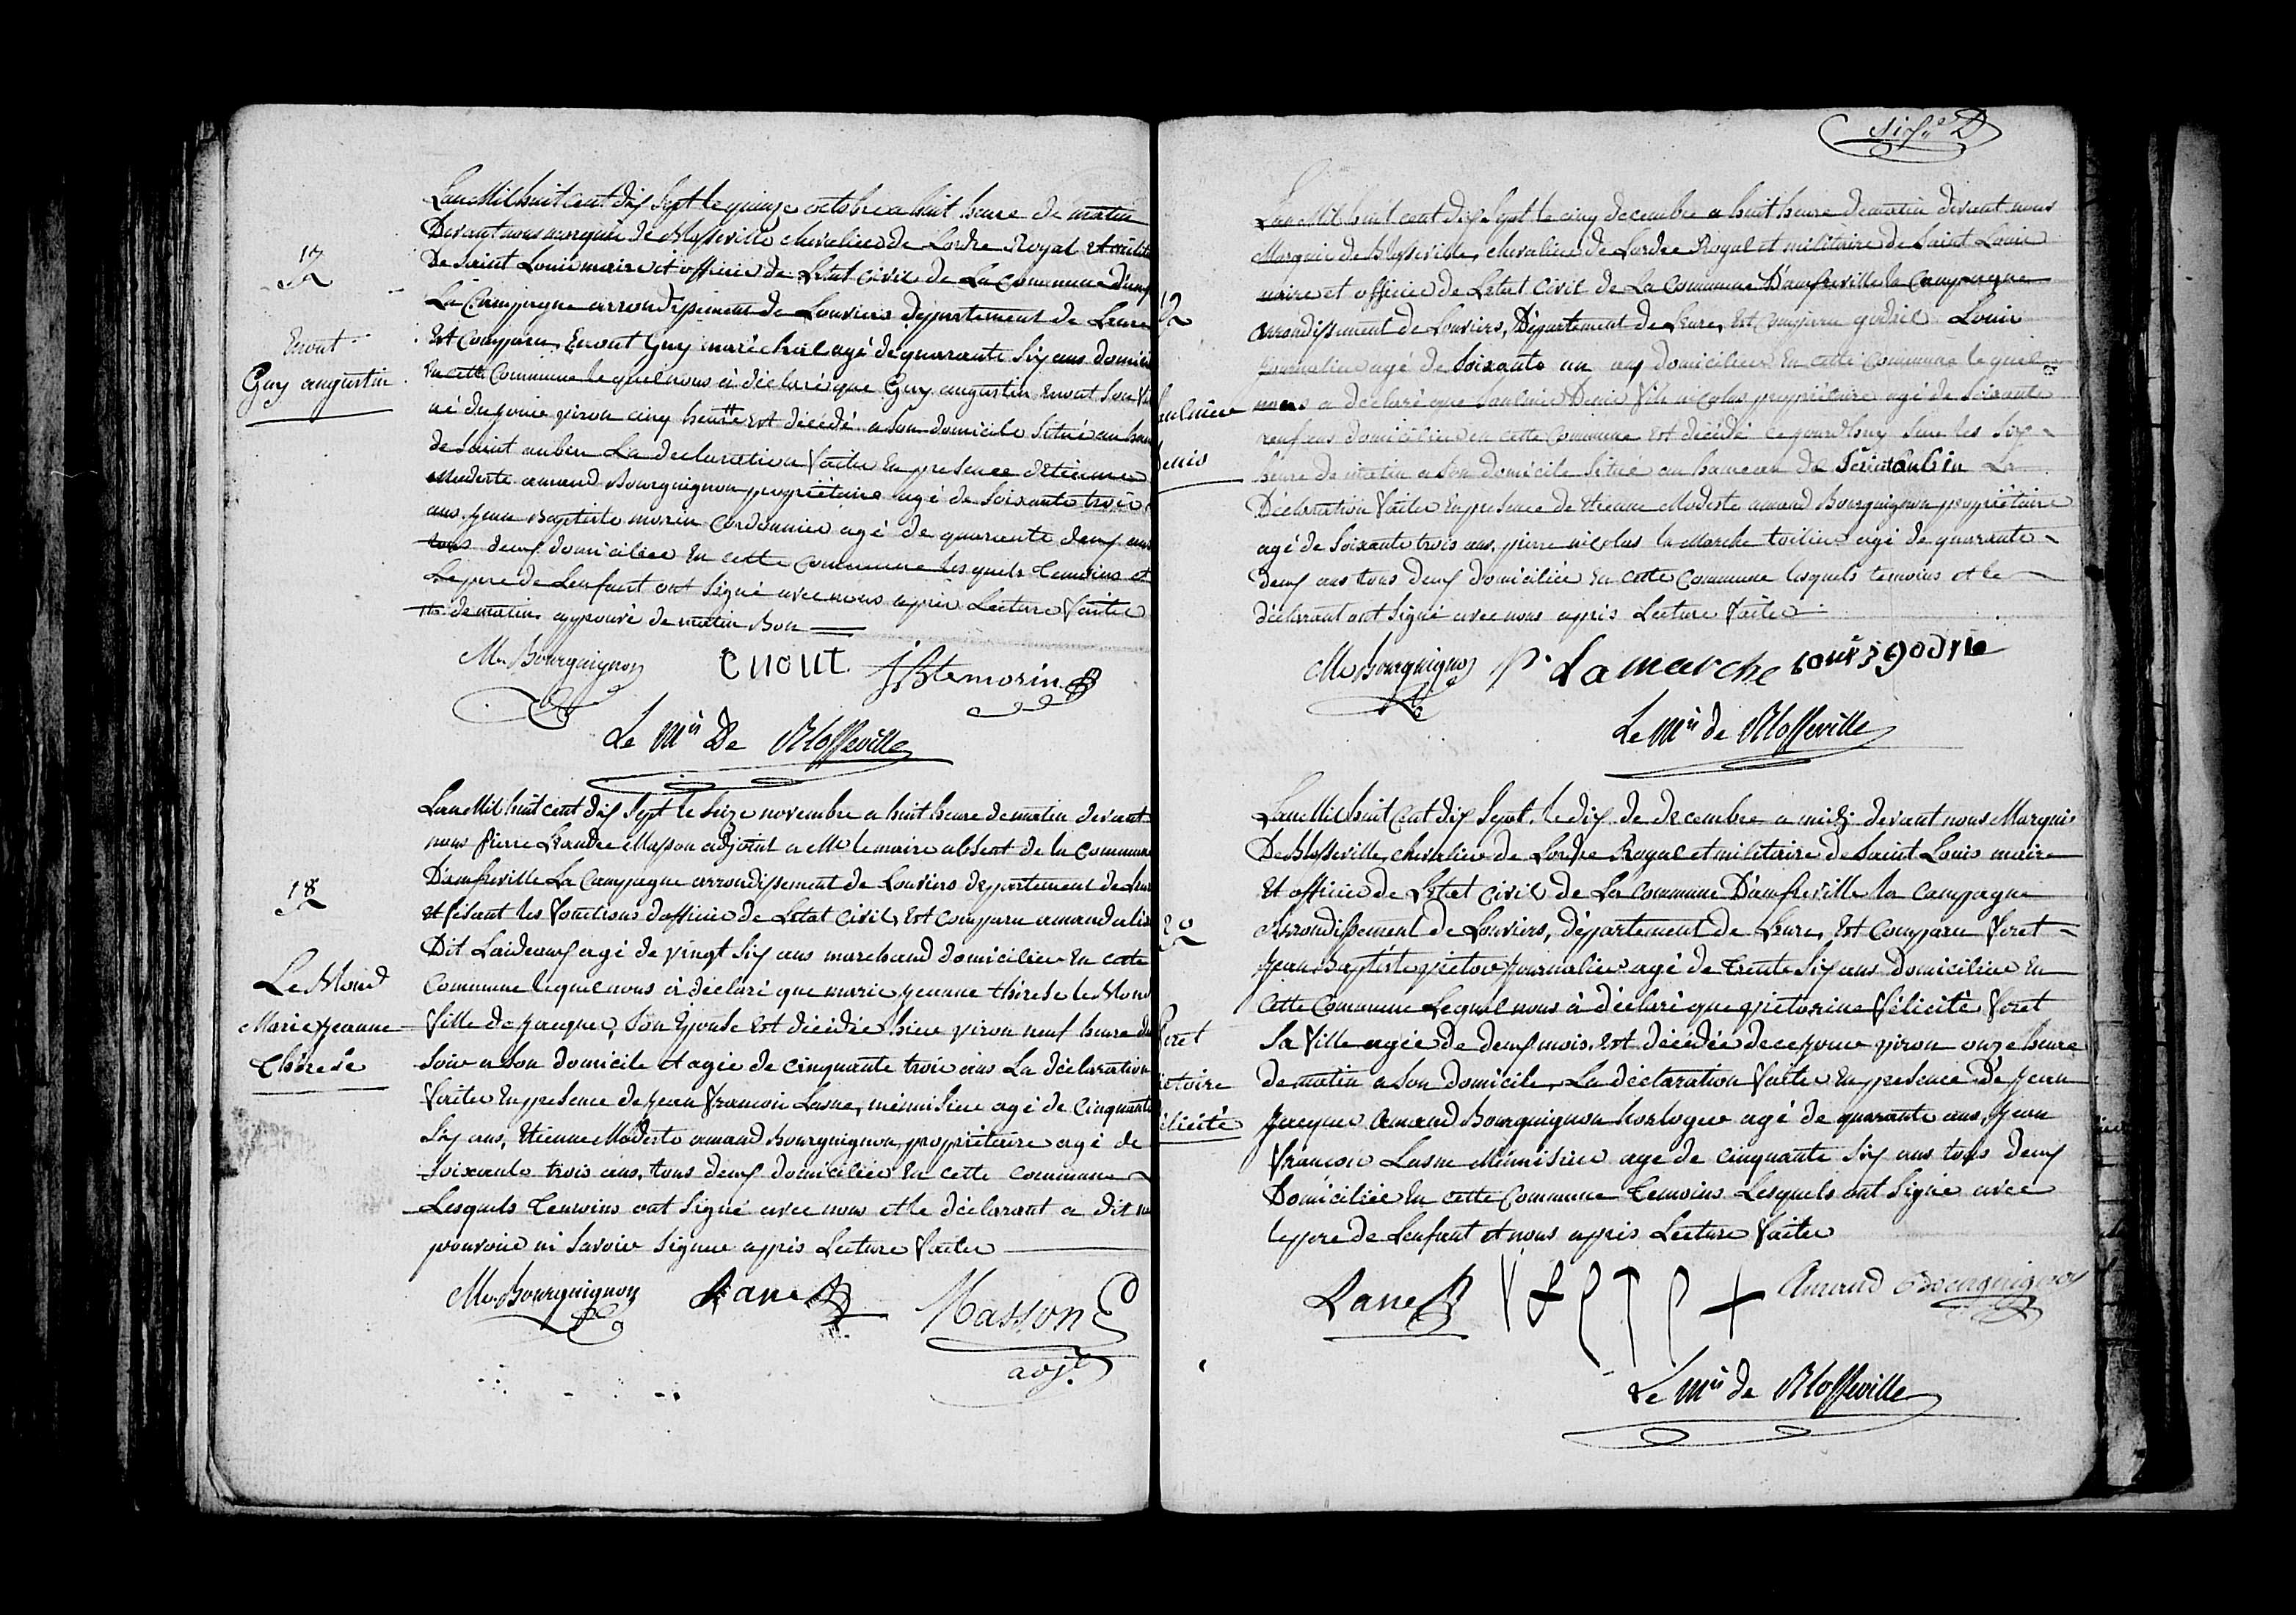 17
Enout
Guy augustin
Lan Mil huit cent dix Sept le quinze octobre a huit heure de matin
Devant nous marquis de Blosseville chevalier de Lordre Royal et milit
De Saint Louis maire et officier de Letat civil de La Commune
La Campagne arrondissement de Louviers département de Leure
Est Comparu Enout Guy maréchal agé de quarante Six ans domici
En cette Commune lequel nous à déclaré que Guy augustin Enout Son fils
né du jouir viron cinq heure Est décédé a Son domicile Situé au ham
de Saint aubin La declaration faite En presence détienne
Modeste amand Bourguignon propriétaire agé de Soixante trois
ans jean Baptiste morin Cordonnier agé de quarante deux ans
tous deux domiciliée En cette Commune lesquels temoins et
Le pere de Lenfant ont Signé avec nous après Lecture faite
de matin approuvé de matin Bon
M. Bourguignon enout JBte morin
Le Mis De Blosseville
18
Le Moud
Marie jeanne
thérèse
Lan Mil huit cent dix Sept le Seize novembre a huit heure de matin devant
nous pierre Leandre Masson adjoint a Mr le maire absent de la Commune
D'amfreville La Campagne arrondissement de Louviers departement de Leure
et fesant les fonctions dofficier de Letat Civil, Est comparu amand
Dit agé de vingt Six ans marchand domicilier En cette
Commune lequel nous à déclaré que marie jeanne thérèse
fille de jacque, Son Epouse Est décédée hier viron neuf heure du
Soir a Son domicile et agée de cinquante trois ans La déclaration
faite En presence de jean francois Lasne, ménuisier agé de Cinquante
Six ans, Etienne Modeste amand Bourguignon propriétaire agé de
Soixante trois ans, tous deux domiciliée En cette commune
Lesquels temoins ont Signé avec nous et le déclarant a dit ne
pouvoir ni Savoir Signer après Lecture faite
M. Bourguignon Lane Masson
adj.
aulnier
denis
Lan Mil huit cent dix Sept le cinq decembre a huit heure de matin devant nous
Marquis de Blosseville, chevalier de Lordre Royal et militaire de Saint Louis
maire et officier de Letat Civil de La Commune D'amfreville la Campagne
arrondissement de Louviers, Département de Leure, Est Comparu godrie Louis
journalier agé de Soixante un ans domicilier En cette Commune lequel
nous a déclaré que Saulnier Denis fils nicolas propriétaire agé de Soixante
neuf ans domicilier en cette Commune Est décédé ce jourdhuy Sur les Six
heure de matin a Son domicile Situé au hameau de Saint aubin La
Déclaration faite En presence de Etienne Modeste amand Bourguignon propriétaire
agé de Soixante trois ans, pierre nicolas la Marche toilier agé de quarante
deux ans tous deux domiciliée En cette Commune lesquels temoins et le
déclarant ont Signé avec nous après Lecture faite
M. Bourguignon P. Lamarche Louis godrie
Le Mis de Blosseville
20
foret
ictoire
élicité
Lan Mil huit Cent dix Sept. le dix de decembre a midi devant nous Marquis
De Blosseville, chevalier de Lordre Royal et militaire de Saint Louis maire
Et officier de Letat Civil de La Commune D'amfreville la Campagne
arrondissement de Louviers, département de Leure, Est Comparu foret
jean Baptiste victor journalier agé de trente Six ans domicilier En
Cette Commune Lequel nous à déclaré que victorine félicité foret
Sa fille agée de deux mois, Est décédée de ce jour viron onze heure
de matin a Son domicile, La déclaration faite En presence de jean
jacque Amand Bourguignon horloger agé de quarante ans, jean
francois Lasne Menuisier agé de cinquante Six ans tous deux
Domiciliée En cette Commune temoins Lesquels ont Signé avec
le pere de Lenfant et nous après Lecture faite
Lane Amand Bourguignon
Le Mis de Blosseville